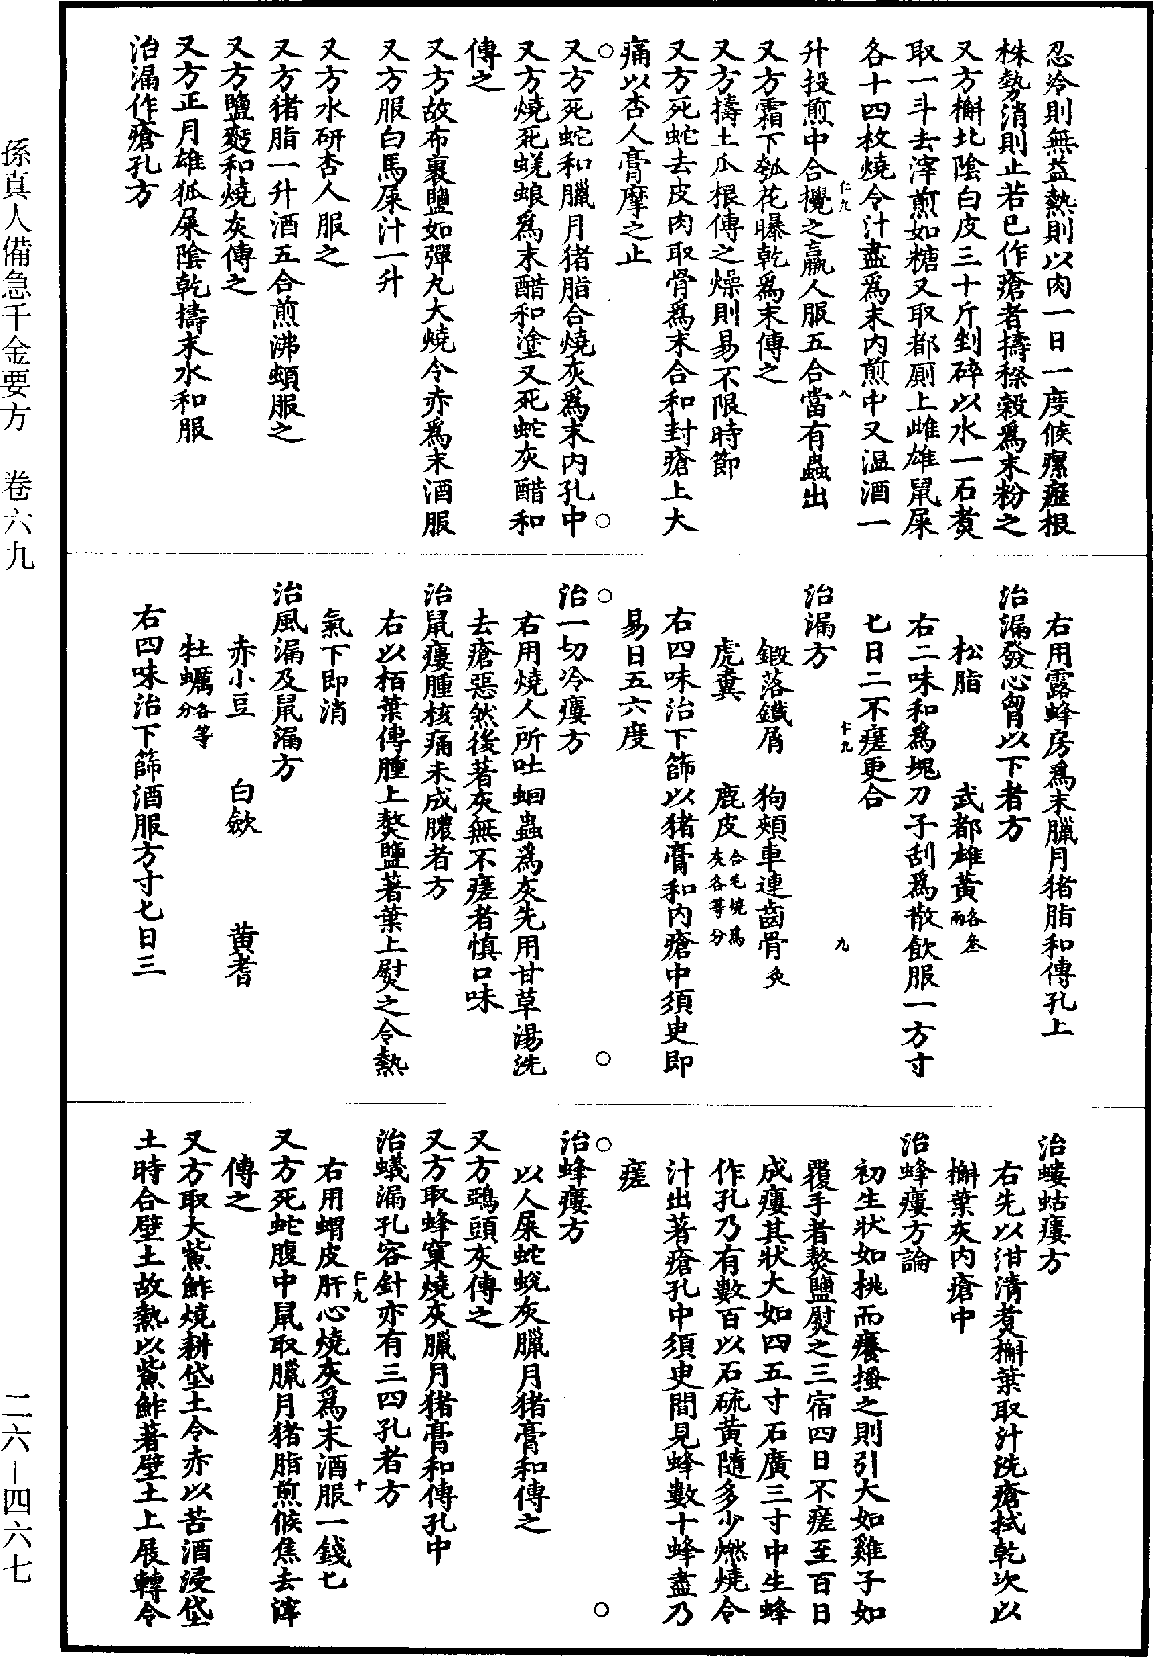 忍冷則無益熱則以肉一日一度候瘰癧根
株勢消則止若已作瘡者擣穄穀爲末粉之
又方槲北陰白皮三十斤剉碎以水一石煑
取一斗去滓煎如糖又取都厠上雌雄鼠屎
各十四枚燒令汁盡爲末内煎中又温酒一
升投煎中合攪之羸人服五合當有蟲出
又方霜下瓠花曝乾爲末傅之
又方擣土瓜根傅之燥則易不限時節
又方死蛇去皮肉取骨爲末合和封瘡上大
痛以杏人膏摩之止
又方死蛇和臘月猪脂合燒灰爲末内孔中
又方燒死蜣蜋爲末醋和塗又死蛇灰醋和
傅之
又方故布裹鹽如彈丸大燒令赤爲末酒服
又方服白馬屎汁一升
又方水研杏人服之
又方猪脂一升酒五合煎沸頓服之
又方鹽麪和燒灰傅之
又方正月雄狐屎陰乾擣末水和服
治漏作瘡孔方
右用露蜂房爲末臘月猪脂和傅孔上
治漏發心胷以下者方
松脂　武都雄黄各叁兩
右二味和爲塊刀子刮爲散飲服一方寸
七日二不瘥更合
治漏方
鍛落鐵屑　狗頰車連齒骨炙
虎糞　鹿皮合毛燒爲灰各等分
右四味治下篩以猪膏和内瘡中須臾即
易日五六度
治一切冷瘻方
右用燒人所吐蛔蟲爲灰先用甘草湯洗
去瘡惡然後著灰無不瘥者慎口味
治鼠瘻腫核痛未成膿者方
右以栢葉傅腫上熬鹽著葉上熨之令熱
氣下即消
治風漏及鼠漏方
赤小豆　白斂　黄耆
牡蠣各等分
右四味治下篩酒服方寸七日三
治螻蛄瘻方
右先以泔清煑槲葉取汁洗瘡拭乾次以
槲葉灰内瘡中
治蜂瘻方論
初生狀如桃而癢搔之則引大如雞子如
覆手者熬鹽熨之三宿四日不瘥至百日
成瘻其狀大如四五寸石廣三寸中生蜂
作孔乃有數百以石硫黄隨多少燃燒令
汁出著瘡孔中須臾間見蜂數十蜂盡乃
瘥
治蜂瘻方
以人屎蛇蛻灰臘月猪膏和傅之
又方鵄頭灰傅之
又方取蜂窠燒灰臘月猪膏和傅孔中
治蟻漏孔容針亦有三四孔者方
右用蝟皮肝心燒灰爲末酒服一錢七
又方死蛇腹中鼠取臘月猪脂煎候焦去滓
傅之
又方取大鮆鮓燒耕垡土令赤以苦酒浸垡
土時合壁土故熱以鮆鮓著壁土上展轉令
孫真人備急千金要方　卷六九
二六—四六七